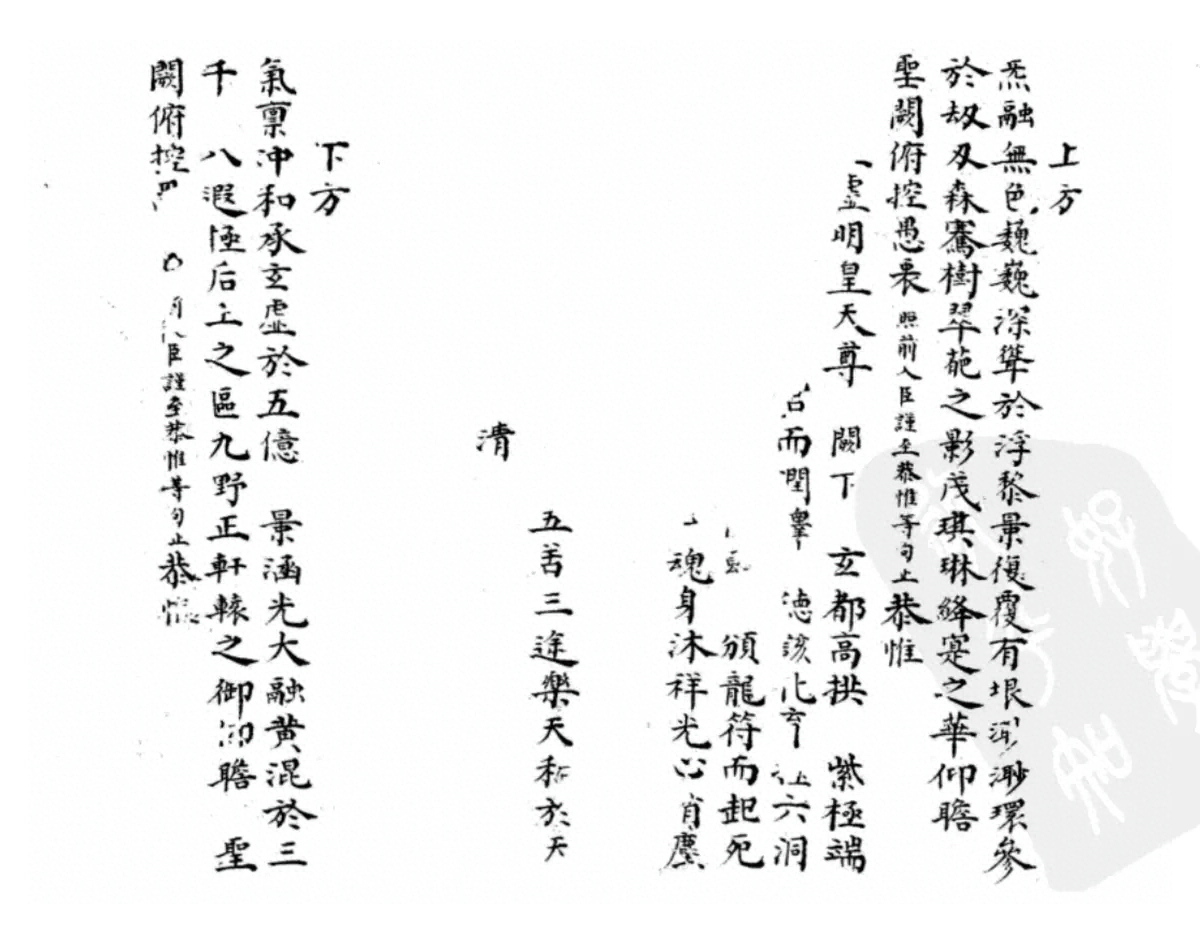 上方
炁融無色巍巍深聳於浮黎景復覆有垠渺環參
於劫刄森騫樹翠葩之影茂琪琳絳寔之華仰瞻
聖闕俯控愚衷照前入臣謹至恭惟等句止恭惟
虛明皇天尊 闕下 玄都高拱 紫極端
而閏舉 德該化育 六洞
頒龍符而起死
魂身沐祥光心 塵
五苦三途樂天 於天
清
下方
氣稟沖和承玄虛於五億 景涵光大融黃混於三
千 八遐 后土之區九野正軒轅之御仰瞻 聖
闕俯控 臣謹至恭惟等句止恭惟